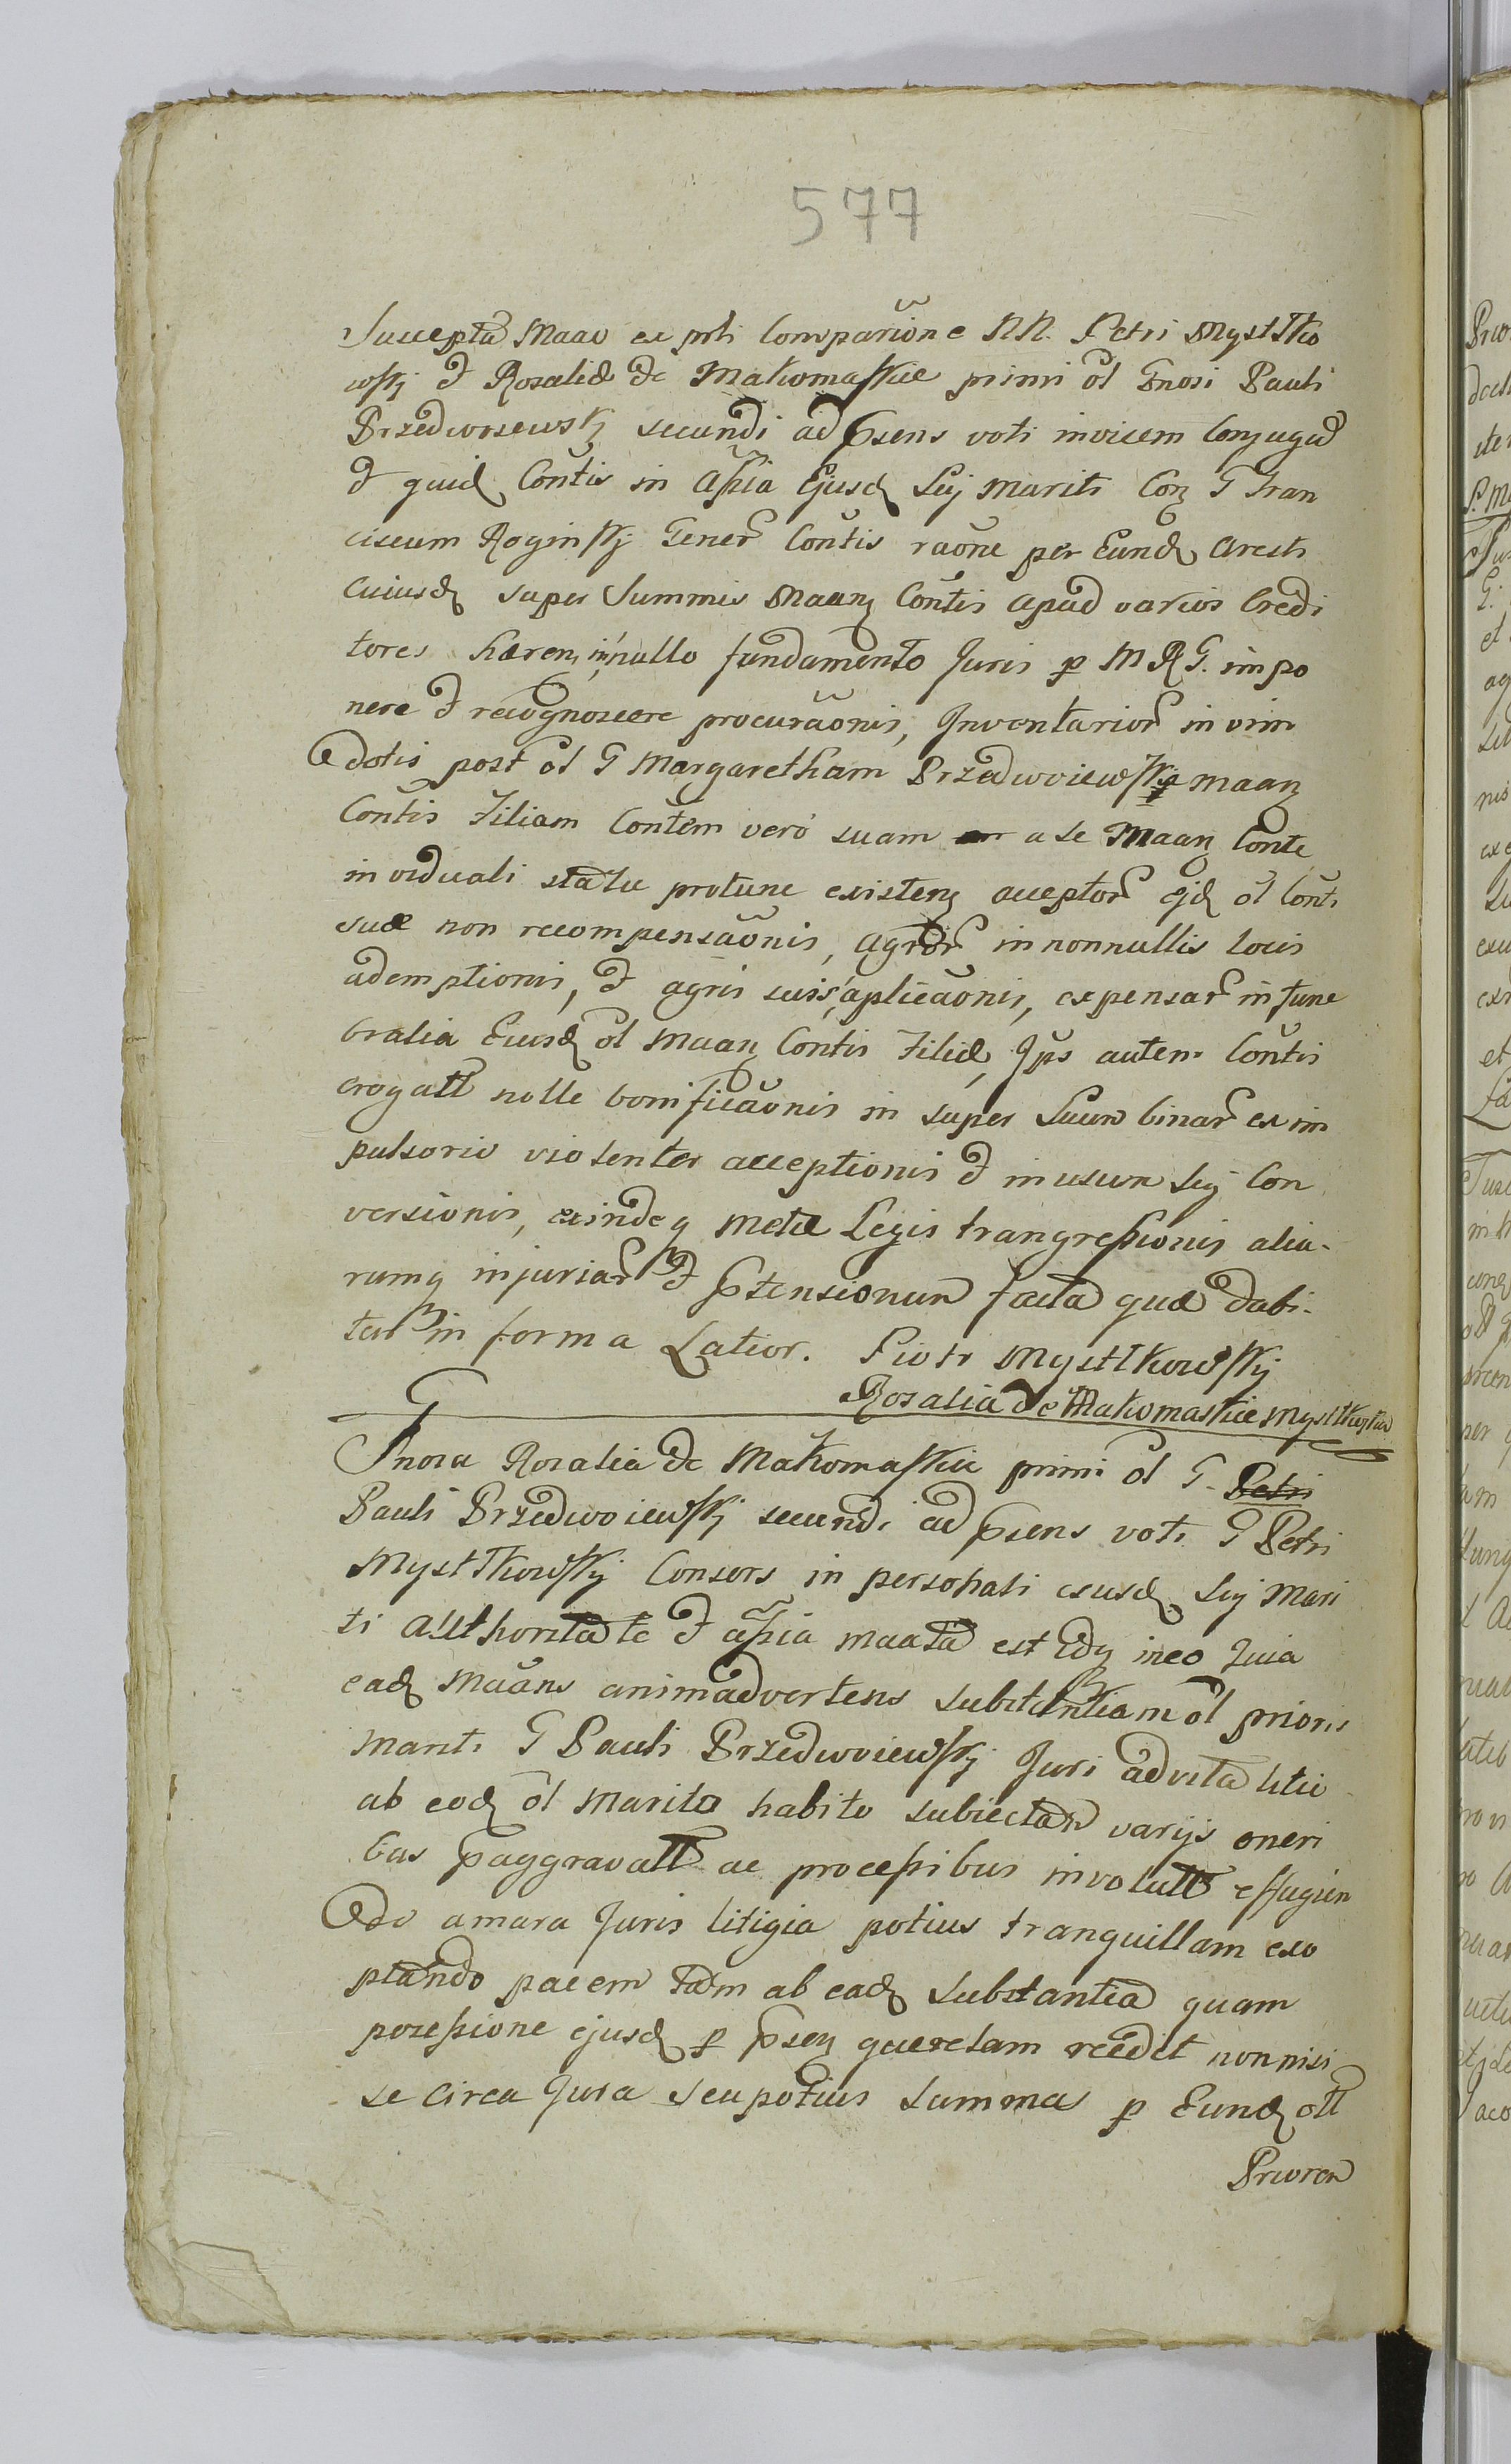 577
Suscepta Maão ex prti Comparitione NN. Petri Mystko
wskj et Rosaliæ de Makomaskie primi ol Gnosi Pauli
Brzedwoiewskj secundi ad psens voti invicem Conjugũ
et quid Contis in assia Ejusd Suj mariti Conz G Fran
ciscum Roginskj Gener Contis raõne per Eund Aresti
Cuiusd super Summis Maanz Contis apud varios Credi
tores hæren, in nullo fundamento Juris p M R G. impo
nere et recognoscere procuraõnis, Inventarior in vim
dotis post ol G Margaretham Brzedwoiewska maanz
Contis Filiam Contem vero suam a se Maanz Conte
in viduali statu protunc existenz acceptor ejd ol Conti
suæ non recompensaõnis, agror in nonnullis locis
ademptionis, et agris suis, aplicaõnis, expensar in fune
bralia Eiusd ol Maanz Contis Filiæ, Jps autem Contis
erogatt nolle bonificaõnis in super Suum binar ex im
pulsorio violenter acceptionis et in usum Suj Con
versionis, exindeq metæ Legis trangressionis alia-
rumq injuriar et ptensionum facta quæ dabi-
tur in forma Latior. Piotr Mysttkowskj
Rosalia de Makomaskie Mysttkowska
Gnosa Rosalia de Makomaskie primi ol G. Petri
Pauli Brzedwoiewskj secundi ad psens voti G Petri
Mysttkowskj Consors in personali ejusd Suj Mari
ti authoritate et assia maata est Idq ineo Quia
ead Maãns animadvertens substantiam ol prioris
Mariti G Pauli Brzedwoiewskj Juri advitalitio
ab eod ol Marito habito subiectam varijs oneri
bus paggravatt ac processibus involutt effugien
do amara Juris litigia potius tranquillam exo
ptando pacem tam ab ead substantia quam
possessione ejusd p psenz querelam recedit non nisi
se circa Jura seu potius summas p Eund oll
Priorem